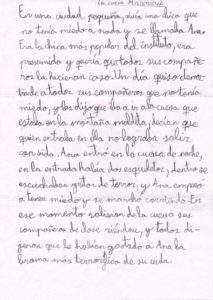 La cueva Misteriosa
En una ciudad pequeña, vivía una chica que
no tenía miedo a nada y se llamaba Ana.
Era la chica más popular del instituto, era
presumida y quería que todos sus compañe-
ros la hicieran caso. Un día quiso demos-
trarle a todos sus compañeros que no tenía
miedo, y les dijo que iba a ir a la cueva que
estaba en la montaña maldita, decían que
quien entraba en ella no lograba salir
con vida. Ana entró en la cueva de noche,
en la entrada había dos esqueletos, dentro se
escuchaban gritos de terror, y Ana empezó
a tener miedo y se marchó corriendo. En
ese momento salieron de la cueva sus
compañeros de clase riéndose, y todos di-
jeron que le habían gastado a Ana la
broma más terrorífica de su vida.